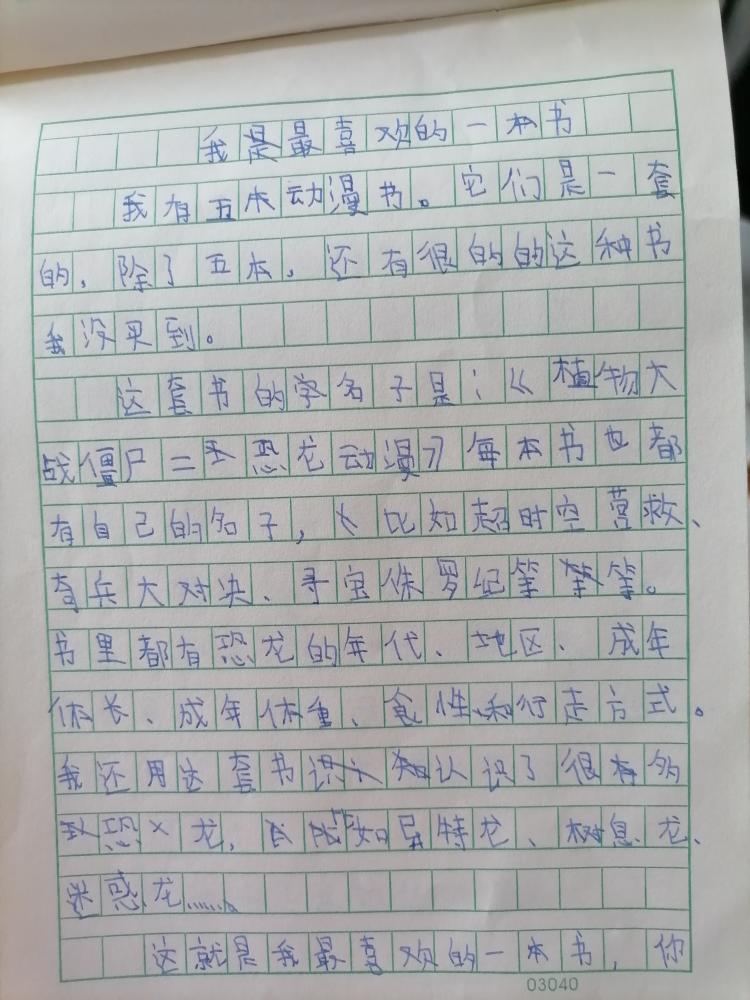 我是最喜欢的一本书
我有五本动漫书。它们是一套
的，除了五本，还有很的的这种书
我没买到。
这套书的学名子是：《植物大
战僵尸二恐龙动漫》每本书也都
有自己的名子，比如超时空营救、
奇兵大对决、寻宝侏罗纪等等。
书里都有恐龙的年代、地区、成年
体长、成年体重、食性、和行走方式。
我还用这套书认识了很多
恐龙，如特龙、树息龙、
迷惑龙……。
这就是我最喜欢的一本书，你
03040